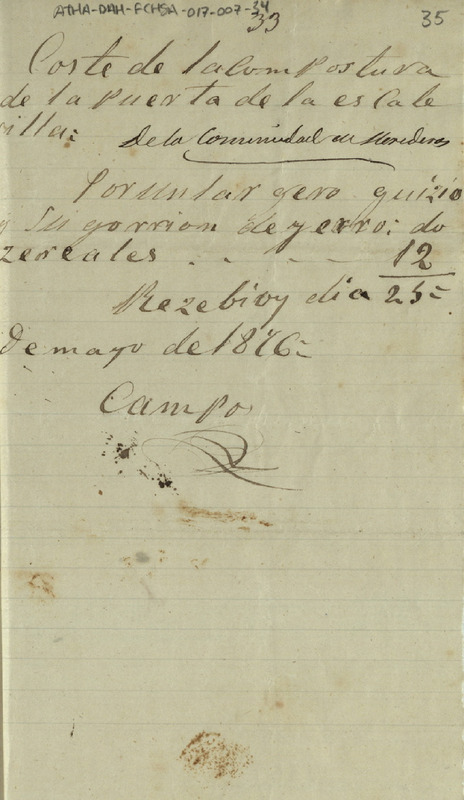 ATHA-DAH-FCHSA-017-007-34
33
35
Coste de lacompostura
de la puerta de la escale
rilla:
De la Comunidad de Herederos
Porun tar gero quizio
y su gorrion de yerro: do
zereales . . - - 12
Rezebi oy dia 25-
De mayo de 1876-
Campo